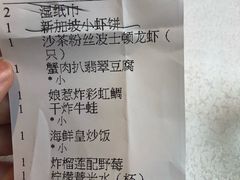 2 湿纸巾
1 新加坡小虾饼
1 沙茶粉丝波士顿龙虾（
只）
1 蟹肉扒翡翠豆腐
*小
1 娘惹炸彩虹鲷
1 干炸牛蛙
*小
1 海鲜皇炒饭
*小
1 炸榴莲配野莓
1 柠檬薏米水（杯）